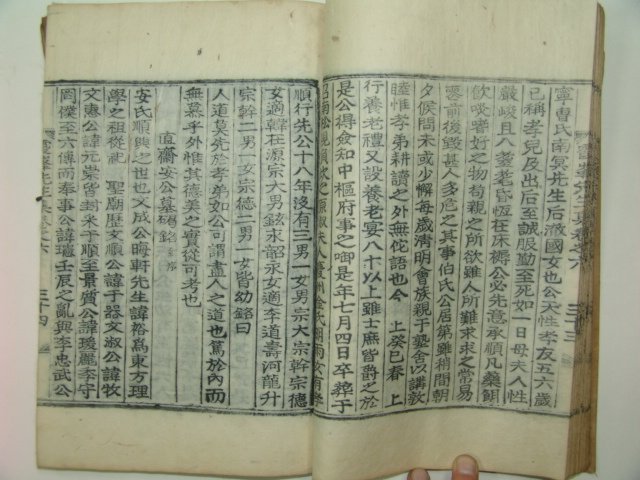 寧曺氏南冥先生后液國女也公天性孝友五六歲
已稱孝兒及出后至誠服勤至死如一日母夫人性
嚴峻且八耋耄昏恆在床褥公必先意承順凡藥餌
飮啖耆好之物苟親之所欲雖人所難求求之常易
喪前後毀甚人多危之其事伯氏公居第雖稍間朝
夕候問未或少懈每歲淸明會族親于塾舍以講敦
睦惟孝弟耕讀之外無佗語也今 上癸巳春 上
行養老禮又設養老宴八十以上雖士庶皆爵之於
是公得僉知中樞府事之啣是年七月四日卒葬于
順行先公十八年沒有二男一女男宗大宗幹宗德
女適韓在源宗大男鉉求韶永女適李道壽河龍升
宗幹二男一女宗德二男一女皆幼銘曰
人道莫先於孝弟如公可謂盡人之道也篤於內而
無慕乎外惟其德美之實從可考也
直齋安公墓碣銘 幷序
安氏順興之世也文成公晦軒先生諱裕爲東方理
學之祖從祀 聖廟歷文順公諱于器文淑公諱牧
文惠公諱元崇皆封米于順至景質公諱璦麗李守
罔僕至六傳而奉事公諱璡壬辰之亂與李忠武公
三十三
三十四